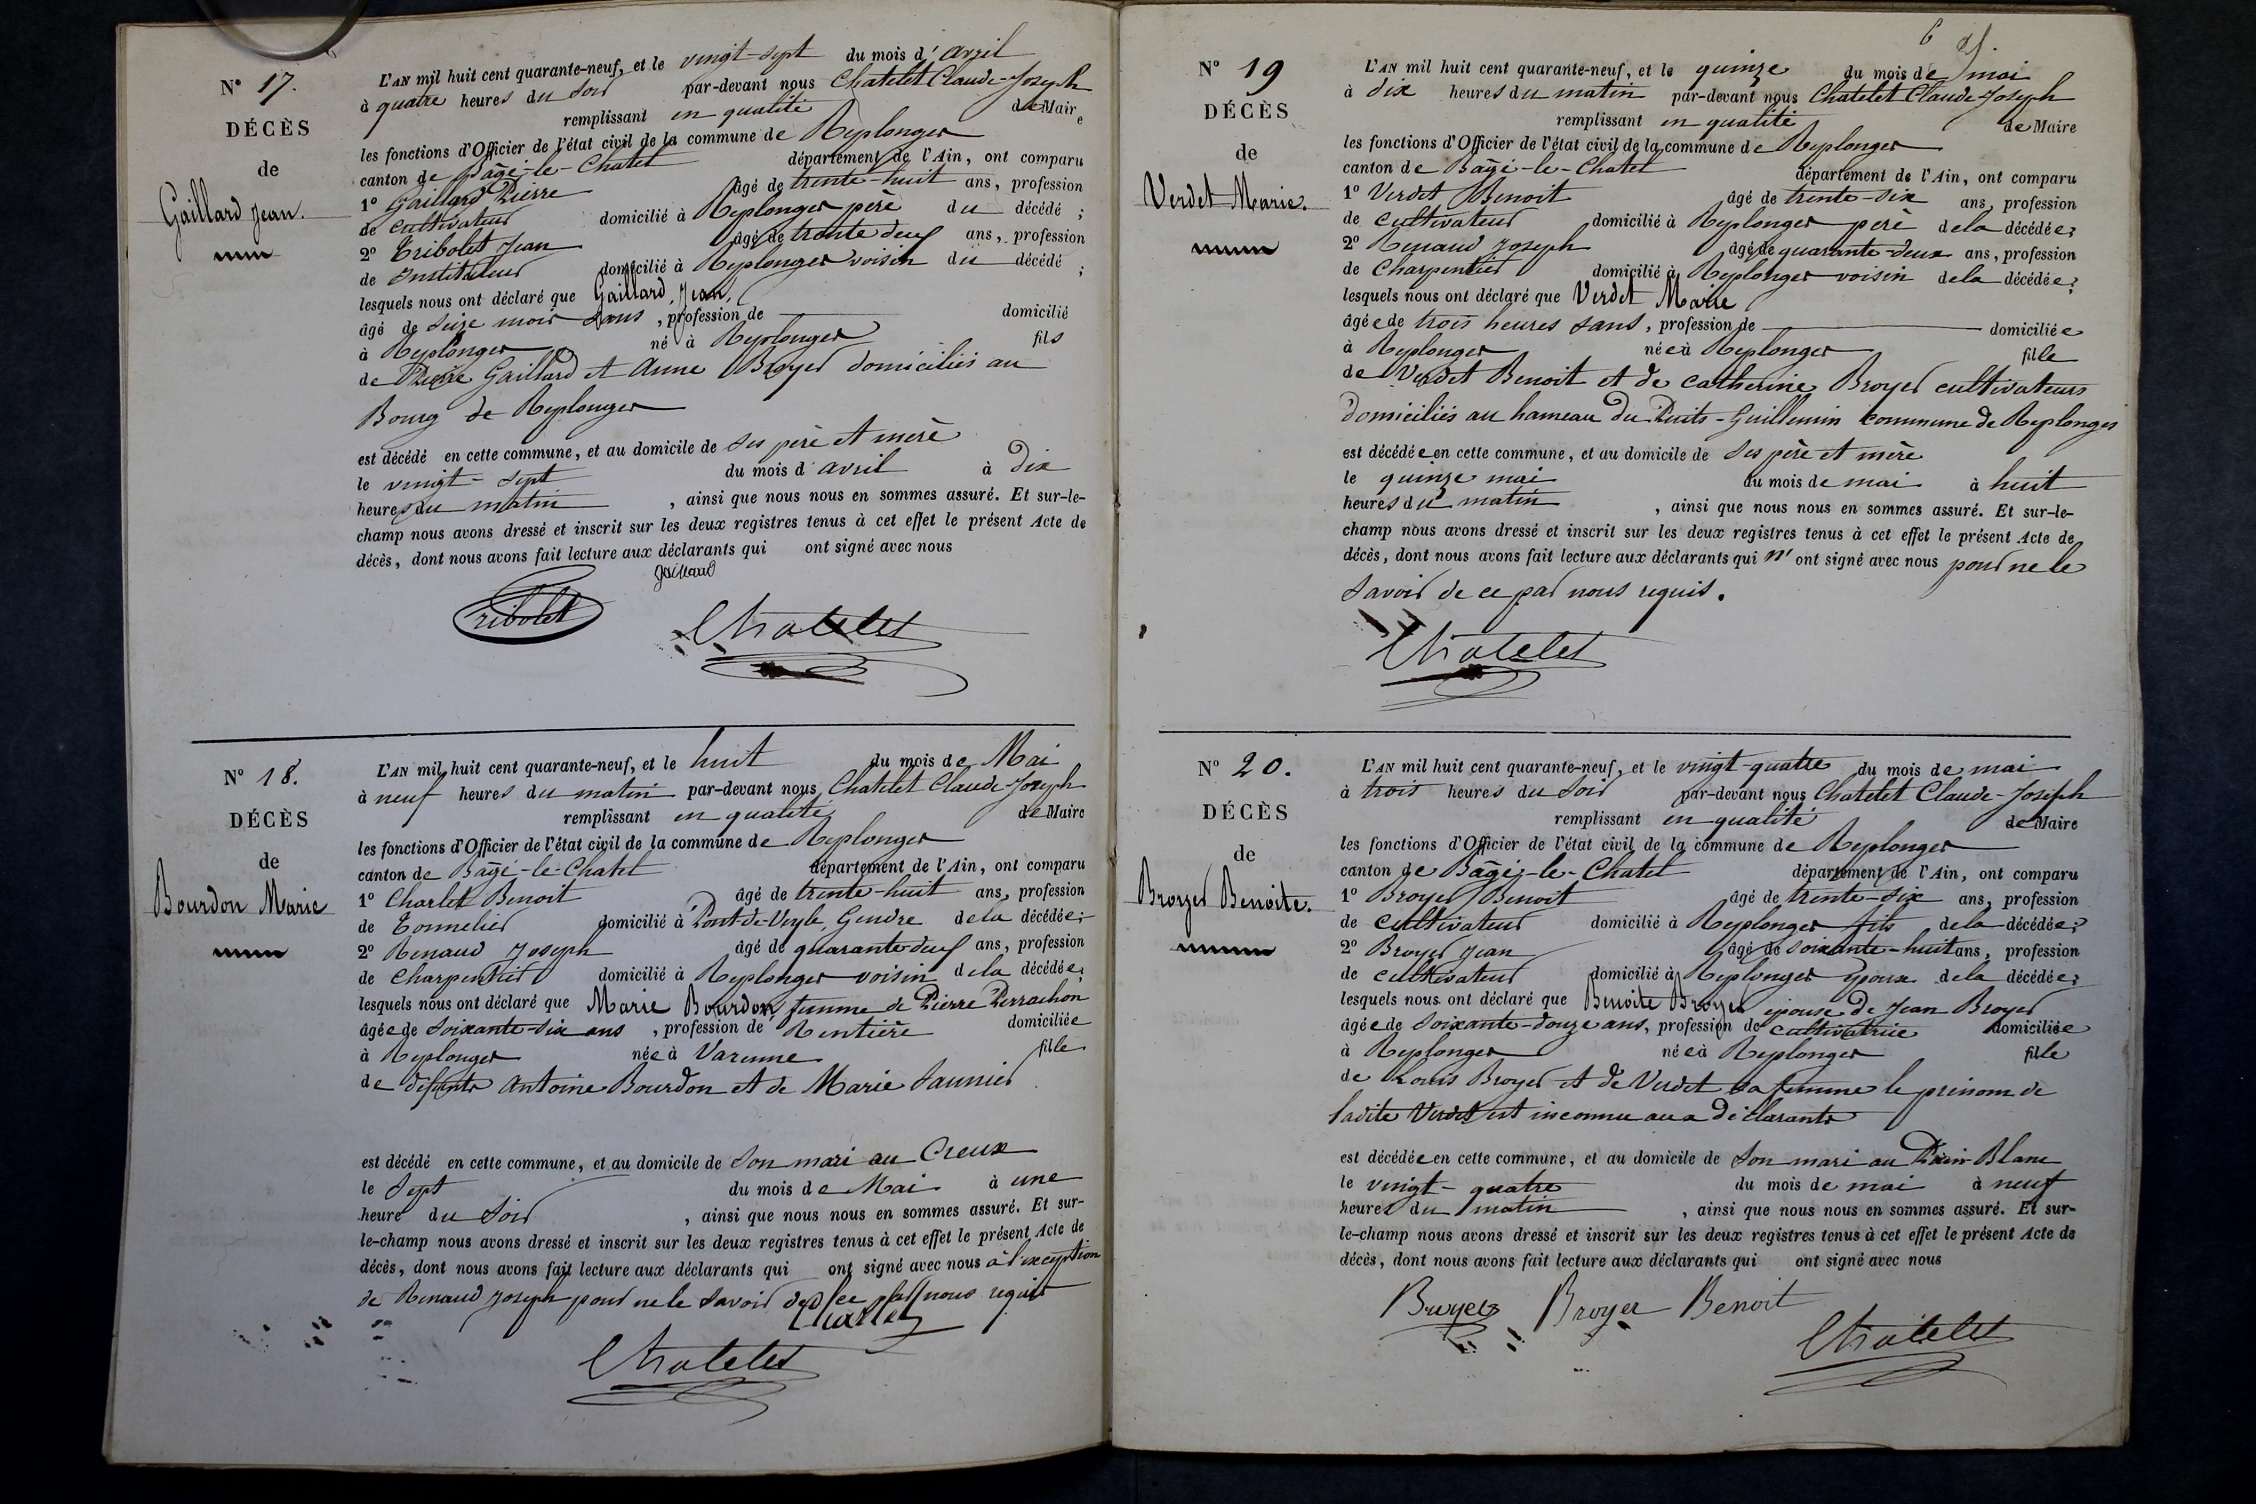 N° 17.
DÉCÈS
de
Gaillard Jean.
L'AN mil huit cent quarante-neuf, et le vingt-sept du mois d'avril
à quatre heures du soir par-devant nous Chatelet Claude-Joseph
remplissant en qualité de Maire
les fonctions d'Officier de l'état civil de la commune de Replonges
canton de Bâgé-le-Chatel département de l'Ain, ont comparu
1° Gaillard Pierre âgé de trente-huit ans, profession
de cultivateur domicilié à Replonges père du décédé ;
2° Tribolet Jean âgé de trente deux ans, profession
de Instituteur domicilié à Replonges voisin du décédé ;
lesquels nous ont déclaré que Gaillard Jean,
âgé de seize mois sans, profession de domicilié
à Replonges né à Replonges fils
de Pierre Gaillard et Anne Broyer domiciliés au
Bourg de Replonges
est décédé en cette commune, et au domicile de ses père et mère
le vingt-sept du mois d avril à dix
heures du matin, ainsi que nous nous en sommes assuré. Et sur-le-
champ nous avons dressé et inscrit sur les deux registres tenus à cet effet le présent Acte de
décès, dont nous avons fait lecture aux déclarants qui ont signé avec nous
Gaillard
Tribolet
Chatelet
N° 18.
DÉCÈS
de
Bourdon Marie
L'AN mil huit cent quarante-neuf, et le huit du mois de Mai
à neuf heures du matin par-devant nous Chatelet Claude-Joseph
remplissant en qualité de Maire
les fonctions d'Officier de l'état civil de la commune de Replonges
canton de Bâgé-le-Chatel département de l'Ain, ont comparu
1° Charlet Benoit âgé de trente-huit ans, profession
de Tonnelier domicilié à Pont-de-Veyle, Gendre de la décédée ;
2° Renaud Joseph âgé de quarante-deux ans, profession
de Charpentier domicilié à Replonges voisin de la décédée ;
lesquels nous ont déclaré que Marie Bourdon femme de Pierre Perrachon
âgée de soixante-six ans, profession de Rentière domiciliée
à Replonges née à Varenne fille
de défunts Antoine Bourdon et de Marie Saunier
est décédé en cette commune, et au domicile de son mari au Creux
le sept du mois de Mai à une
heure du soir, ainsi que nous nous en sommes assuré. Et sur-
le-champ nous avons dressé et inscrit sur les deux registres tenus à cet effet le présent Acte de
décès, dont nous avons fait lecture aux déclarants qui ont signé avec nous à l'exception
de Renaud Joseph pour ne le savoir de ce par nous requis
Charlet
Chatelet
6
N° 19
DÉCÈS
de
Verdet Marie.
L'AN mil huit cent quarante-neuf, et le quinze du mois de mai
à dix heures du matin par-devant nous Chatelet Claude-Joseph
remplissant en qualité de Maire
les fonctions d'Officier de l'état civil de la commune de Replonges
canton de Bâgé-le-Chatel département de l'Ain, ont comparu
1° Verdet Benoit âgé de trente-six ans, profession
de cultivateur domicilié à Replonges père de la décédée ;
2° Renaud Joseph âgé de quarante-deux ans, profession
de Charpentier domicilié à Replonges voisin de la décédée ;
lesquels nous ont déclaré que Verdet Marie
âgée de trois heures sans, profession de domiciliée
à Replonges née à Replonges fille
de Verdet Benoit et de Catherine Broyer cultivateurs
domiciliés au hameau du Puits-Guillemin commune de Replonges
est décédée en cette commune, et au domicile de ses père et mère
le quinze mai du mois de mai à huit
heures du matin, ainsi que nous nous en sommes assuré. Et sur-le-
champ nous avons dressé et inscrit sur les deux registres tenus à cet effet le présent Acte de
décès, dont nous avons fait lecture aux déclarants qui n'ont signé avec nous pour ne le
savoir de ce par nous requis.
Chatelet
N° 20.
DÉCÈS
de
Broyer Benoite.
L'AN mil huit cent quarante-neuf, et le vingt-quatre du mois de mai
à trois heures du soir par-devant nous Chatelet Claude-Joseph
remplissant en qualité de Maire
les fonctions d'Officier de l'état civil de la commune de Replonges
canton de Bâgé-le-Chatel département de l'Ain, ont comparu
1° Broyer Benoit âgé de trente-six ans, profession
de cultivateur domicilié à Replonges fils de la décédée ;
2° Broyer Jean âgé de soixante-huit ans, profession
de cultivateur domicilié à Replonges époux de la décédée ;
lesquels nous ont déclaré que Benoite Broyer épouse de Jean Broyer
âgée de soixante-douze ans, profession de cultivatrice domiciliée
à Replonges née à Replonges fille
de Louis Broyer et de Verdet sa femme le prénom de
ladite Verdet est inconnu aux déclarants
est décédée en cette commune, et au domicile de son mari au Pain-Blanc
le vingt-quatre du mois de mai à neuf
heures du matin, ainsi que nous nous en sommes assuré. Et sur-
le-champ nous avons dressé et inscrit sur les deux registres tenus à cet effet le présent Acte de
décès, dont nous avons fait lecture aux déclarants qui ont signé avec nous
Broyer Broyer Benoit
Chatelet